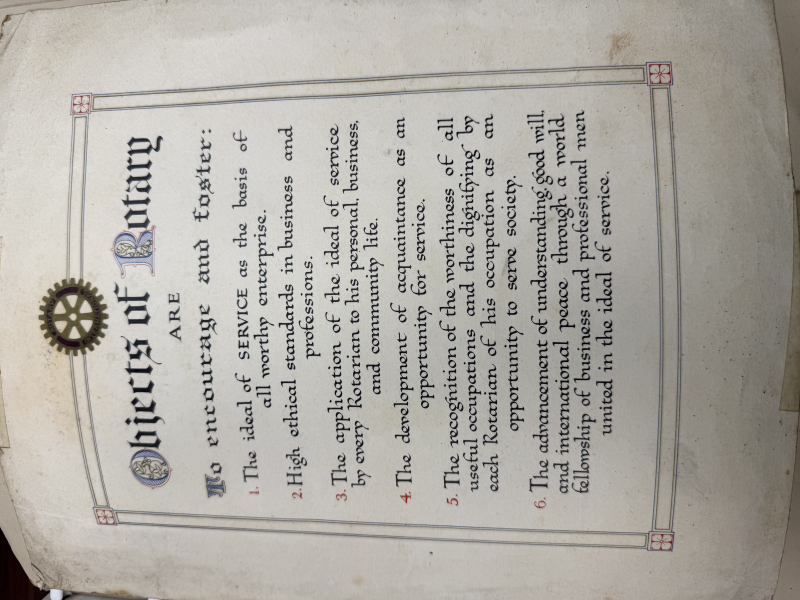 Objects of Rotary
ARE
To encourage and foster:
1. The ideal of SERVICE as the basis of
all worthy enterprise.
2. High ethical standards in business and
professions.
3. The application of the ideal of service
by every Rotarian to his personal, business,
and community life.
4. The development of acquaintance as an
opportunity for service.
5. The recognition of the worthiness of all
useful occupations and the dignifying by
each Rotarian of his occupation as an
opportunity to serve society.
6. The advancement of understanding, good will,
and international peace through a world
fellowship of business and professional men
united in the ideal of service.